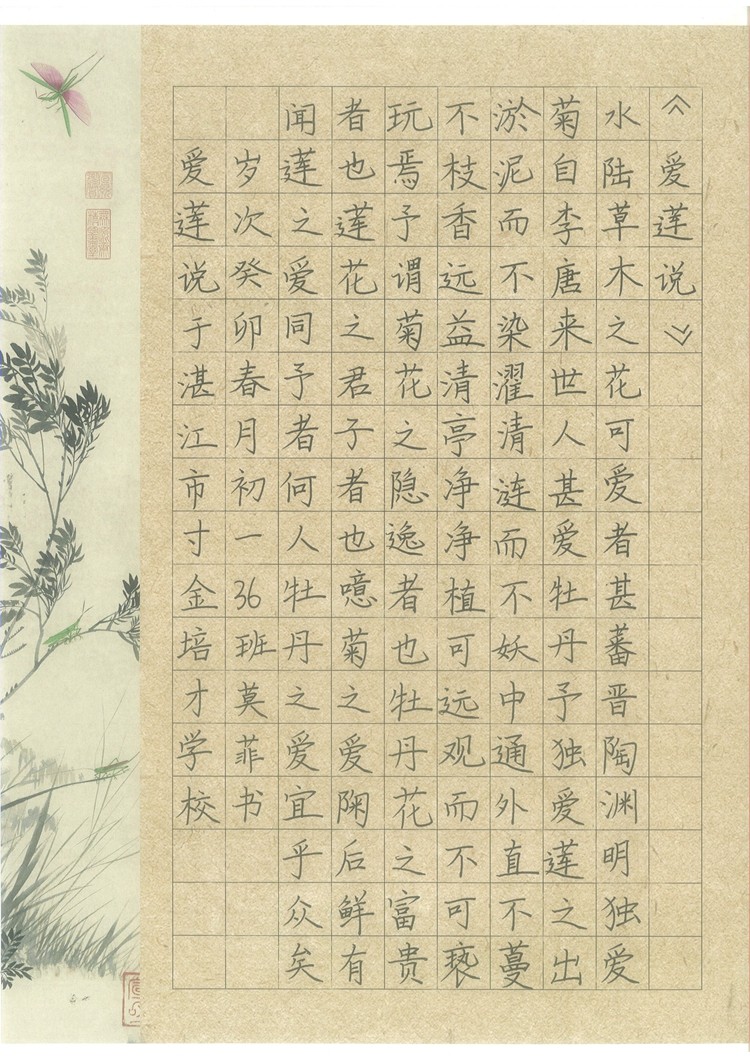 《爱莲说》
水陆草木之花可爱者甚蕃晋陶渊明独爱
菊自李唐来世人甚爱牡丹予独爱莲之出
淤泥而不染濯清涟而不妖中通外直不蔓
不枝香远益清亭净净植可远观而不可亵
玩焉予谓菊花之隐逸者也牡丹花之富贵
者也莲花之君子者也噫菊之爱陶后鲜有
闻莲之爱同予者何人牡丹之爱宜乎众矣
岁次癸卯春月初一36班莫菲书
爱莲说于湛江市寸金培才学校